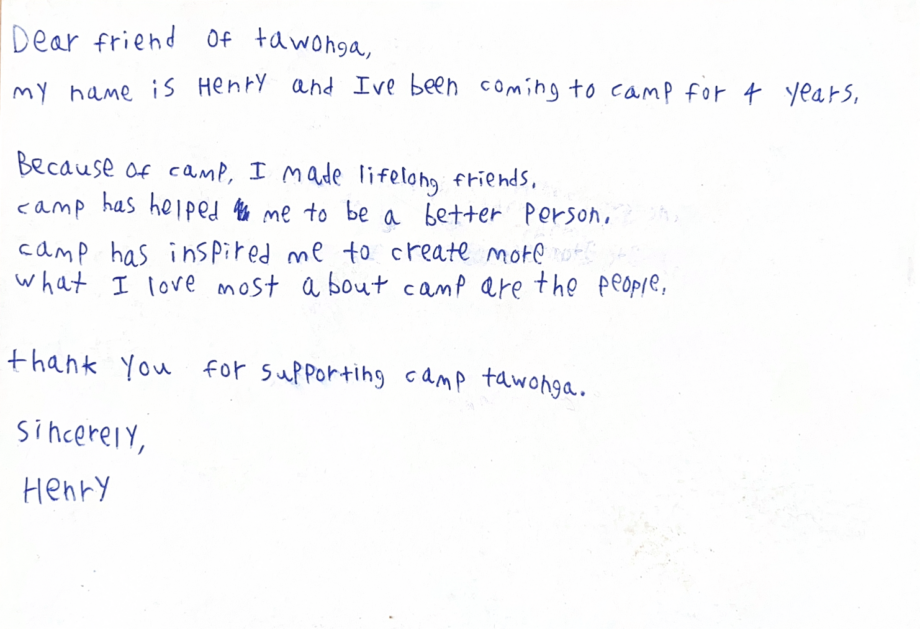 Dear friend of tawonga,
my name is Henry and Ive been coming to camp for 4 years.
Because of camp, I made lifelong friends.
camp has helped me to be a better person.
camp has inspired me to create more
what I love most about camp are the people.
thank you for supporting camp tawonga.
Sincerely,
Henry